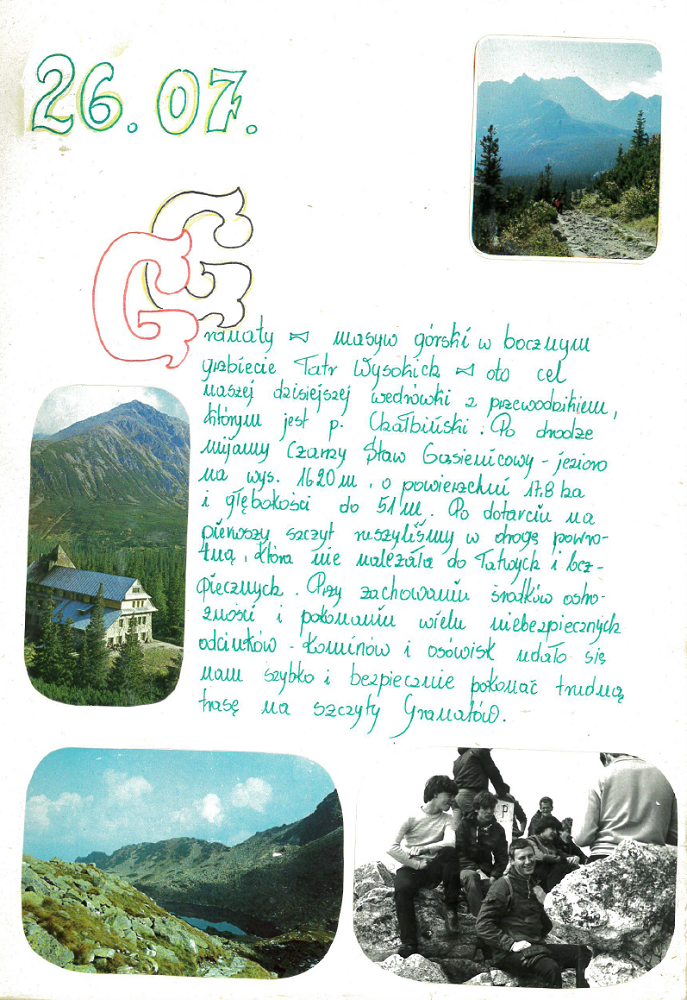 26.07.
G
Granaty ⋈ masyw górski w bocznym
grzbiecie Tatr Wysokich ⋈ oto cel
naszej dzisiejszej wędrówki z przewodnikiem,
którym jest p. Chałbiński. Po drodze
mijamy Czarny Staw Gąsienicowy - jezioro
na wys. 1620 m, o powierzchni 17.8 ha
i głębokości do 51 m. Po dotarciu na
pierwszy szczyt ruszyliśmy w drogę powro-
tną, która nie należała do łatwych i bez-
piecznych. Przy zachowaniu środków ostro-
żności i pokonaniu wielu niebezpiecznych
odcinków - kominów i osówisk udało się
nam szybko i bezpiecznie pokonać trudną
trasę na szczyty Granatów.
P